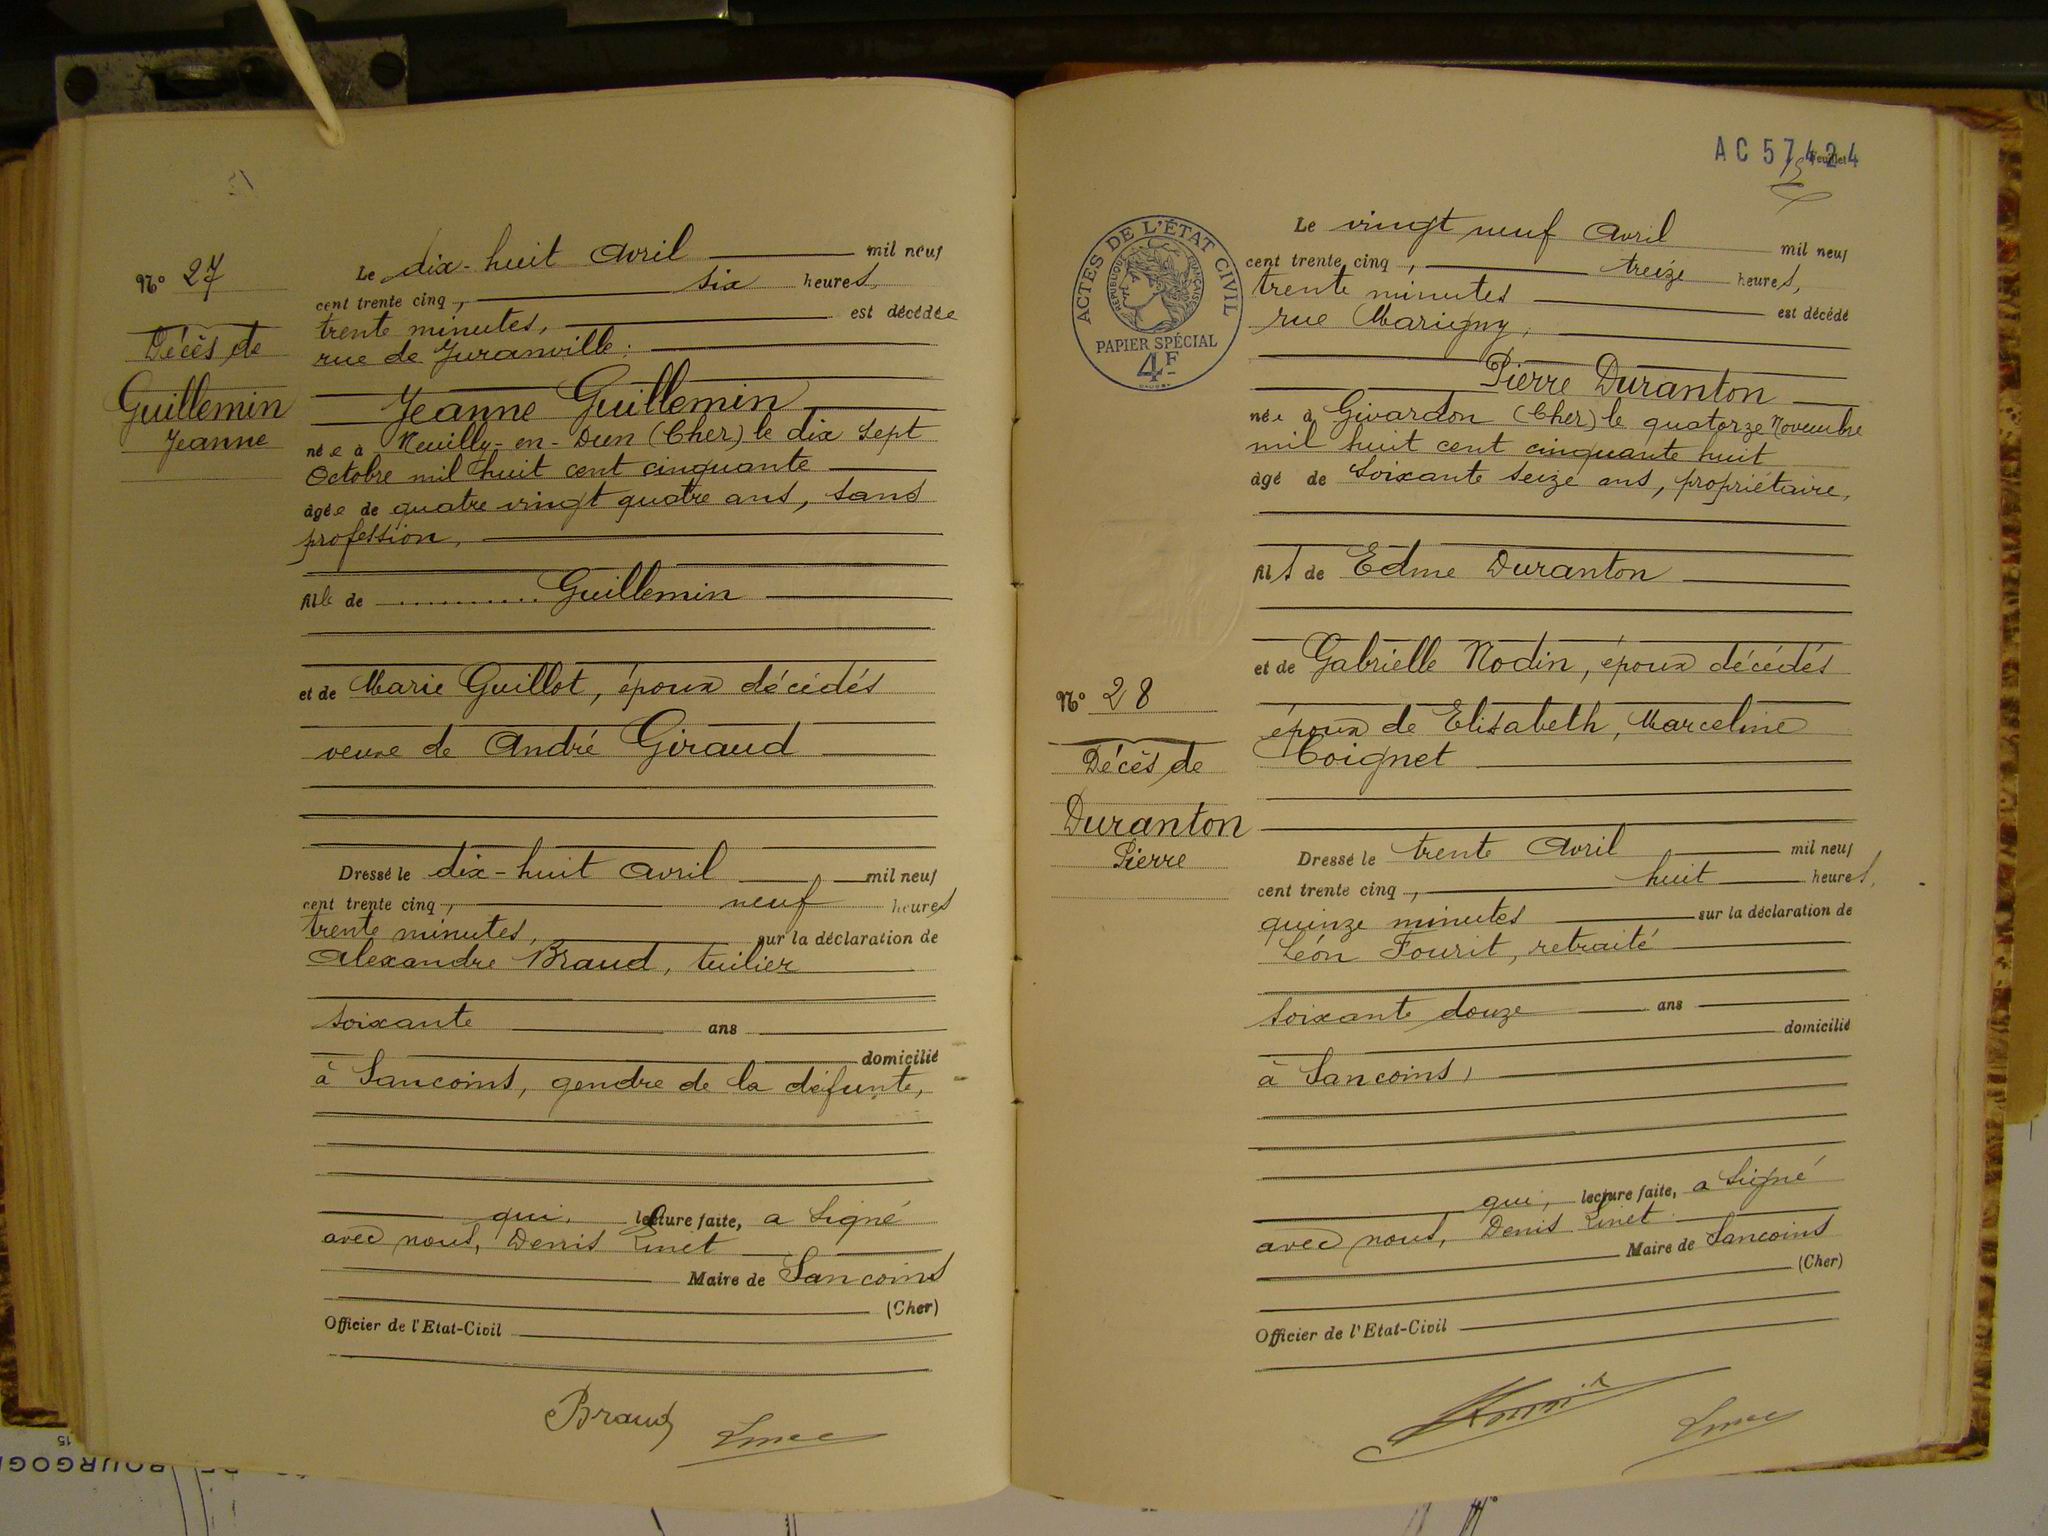 Nº 27
Décès de
Guillemin
Jeanne
Le dix-huit Avril mil neuf
cent trente cinq, six heures,
trente minutes, est décédée
rue de Juranville,
Jeanne Guillemin
née à Neuilly-en-Dun (Cher) le dix sept
Octobre mil huit cent cinquante
âgée de quatre vingt quatre ans, sans
profession,
fille de ........... Guillemin
et de Marie Guillot, époux décédés
veuve de André Giraud
Dressé le dix-huit Avril mil neuf
cent trente cinq, neuf heures
trente minutes, sur la déclaration de
Alexandre Braud, tuilier
soixante ans
domicilié
à Sancoins, gendre de la défunte,
qui, lecture faite, a signé
avec nous, Denis Linet
Maire de Sancoins
(Cher)
Officier de l'Etat-Civil
Braud
AC 57424
Feuillet
ACTES DE L'ÉTAT CIVIL
RÉPUBLIQUE FRANÇAISE
PAPIER SPÉCIAL
4F
Nº 28
Décès de
Duranton
Pierre
Le vingt neuf Avril mil neuf
cent trente cinq, treize heures,
trente minutes est décédé
rue Marigny,
Pierre Duranton
née à Givardon (Cher) le quatorze Novembre
mil huit cent cinquante huit
âgé de soixante seize ans, propriétaire,
fils de Edme Duranton
et de Gabrielle Nodin, époux décédés
époux de Elisabeth, Marceline
Coignet
Dressé le trente Avril mil neuf
cent trente cinq, huit heures,
quinze minutes sur la déclaration de
Léon Fourit, retraité
soixante douze ans
domicilié
à Sancoins,
qui, lecture faite, a signé
avec nous, Denis Linet
Maire de Sancoins
(Cher)
Officier de l'Etat-Civil